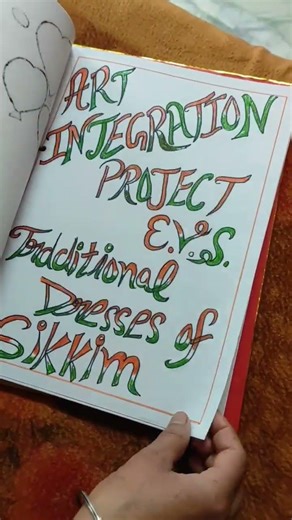 ART
INTEGRATION
PROJECT
E.V.S.
Traditional
Dresses of
Sikkim